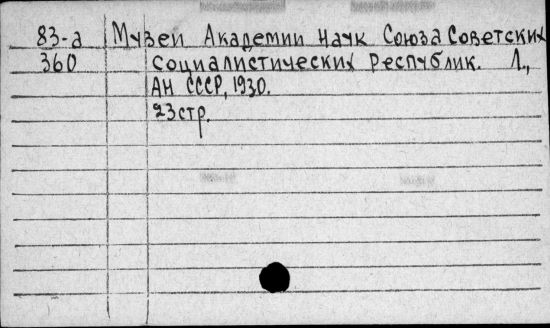 83-а Музеи Академии Наук Союза Советских
360 Социалистических Республик. Л.,
АН СССР, 1930.
23 стр.